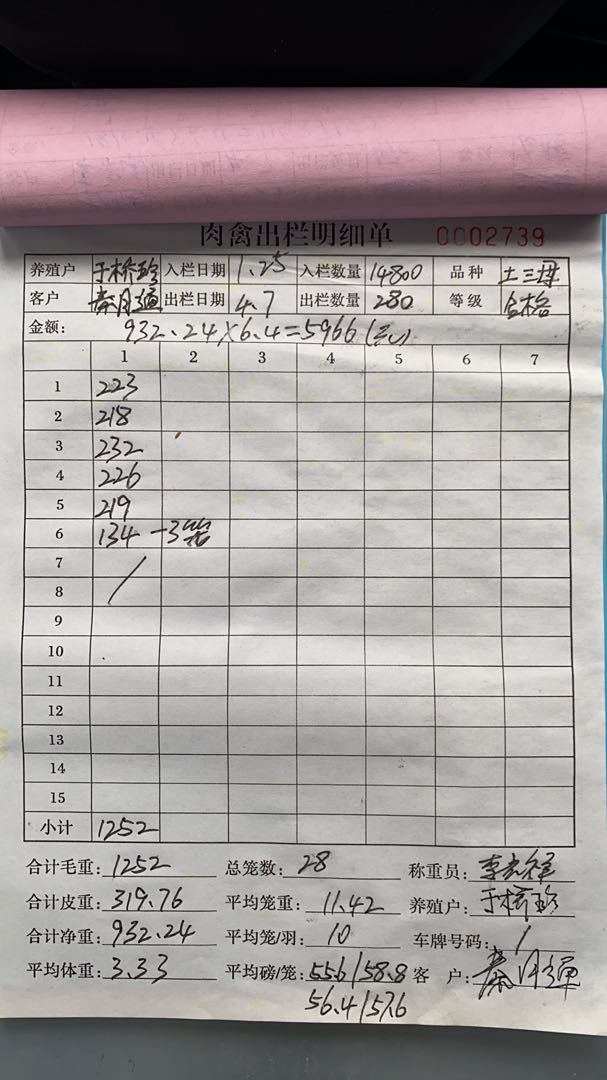 肉禽出栏明细单 0002739
养殖户 于桥珍 入栏日期 1.25 入栏数量 14800 品种 土三母
客户 秦月 出栏日期 4.7 出栏数量 280 等级 合格
金额: 932.24×6.4=5966(元)
1 2 3 4 5 6 7
1 223
2 218
3 232
4 226
5 219
6 134 -3笼
7 /
8
9
10
11
12
13
14
15
小计 1252
合计毛重: 1252 总笼数: 28 称重员:
合计皮重: 319.76 平均笼重: 11.42 养殖户: 于桥珍
合计净重: 932.24 平均笼/羽: 10 车牌号码: /
平均体重: 3.33 平均磅/笼: 55.6/58.8 客户: 秦月
56.4/57.6